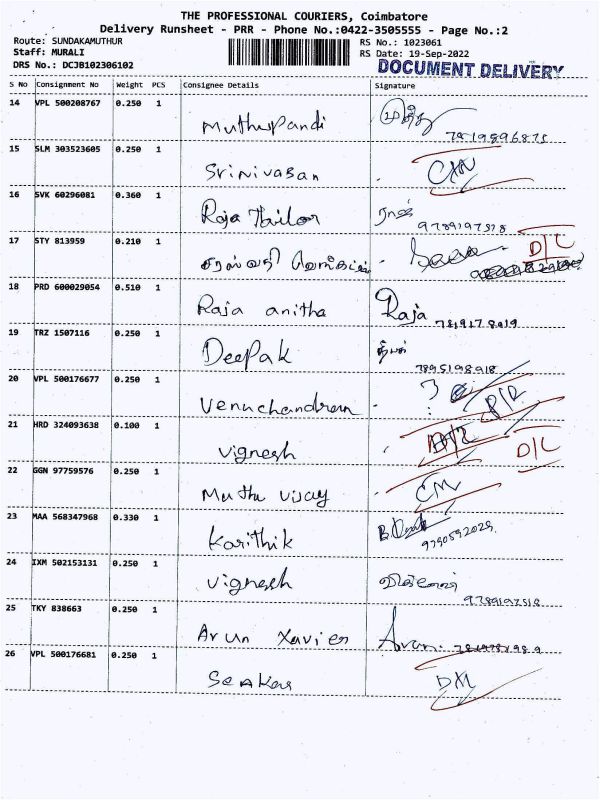 THE PROFESSIONAL COURIERS, Coimbatore
Delivery Runsheet - PRR - Phone No.:0422-3505555 - Page No.:2
Route: SUNDAKAMUTHUR RS No.: 1023061
Staff: MURALI RS Date: 19-Sep-2022
DRS No.: DCJB102306102 DOCUMENT DELIVERY
S No Consignment No Weight PCS Consignee Details Signature
14 VPL 500208767 0.250 1
Muthupandi
15 SLM 303523605 0.250 1
Srinivasan
16 SVK 60296081 0.360 1
Raja Tailor 9789197518
17 STY 813959 0.210 1 D/L
சரஸ்வதி
18 PRD 600029054 0.510 1
Raja anitha Raja
19 TRZ 1507116 0.250 1
Deepak தீபக்
7895198918
20 VPL 500176677 0.250 1
Venuchandran
21 HRD 324093638 0.100 1
Vignesh D/L
22 GGN 97759576 0.250 1
Muthu vijay
23 MAA 568347968 0.330 1
Karithik
9790592025
24 IXM 502153131 0.250 1
Vignesh
9789197518
25 TKY 838663 0.250 1
Arun Xavier Arun
26 VPL 500176681 0.250 1
Seakar